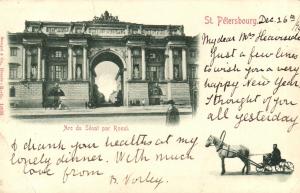 St. Pétersbourg, Dec. 26th
My dear Mrs
Just a few lines
to wish you a very
happy New Year
I thought of you
all yesterday
Arc du Sénat par Rossi.
& drank your healths at my
lonely dinner. With much
love from